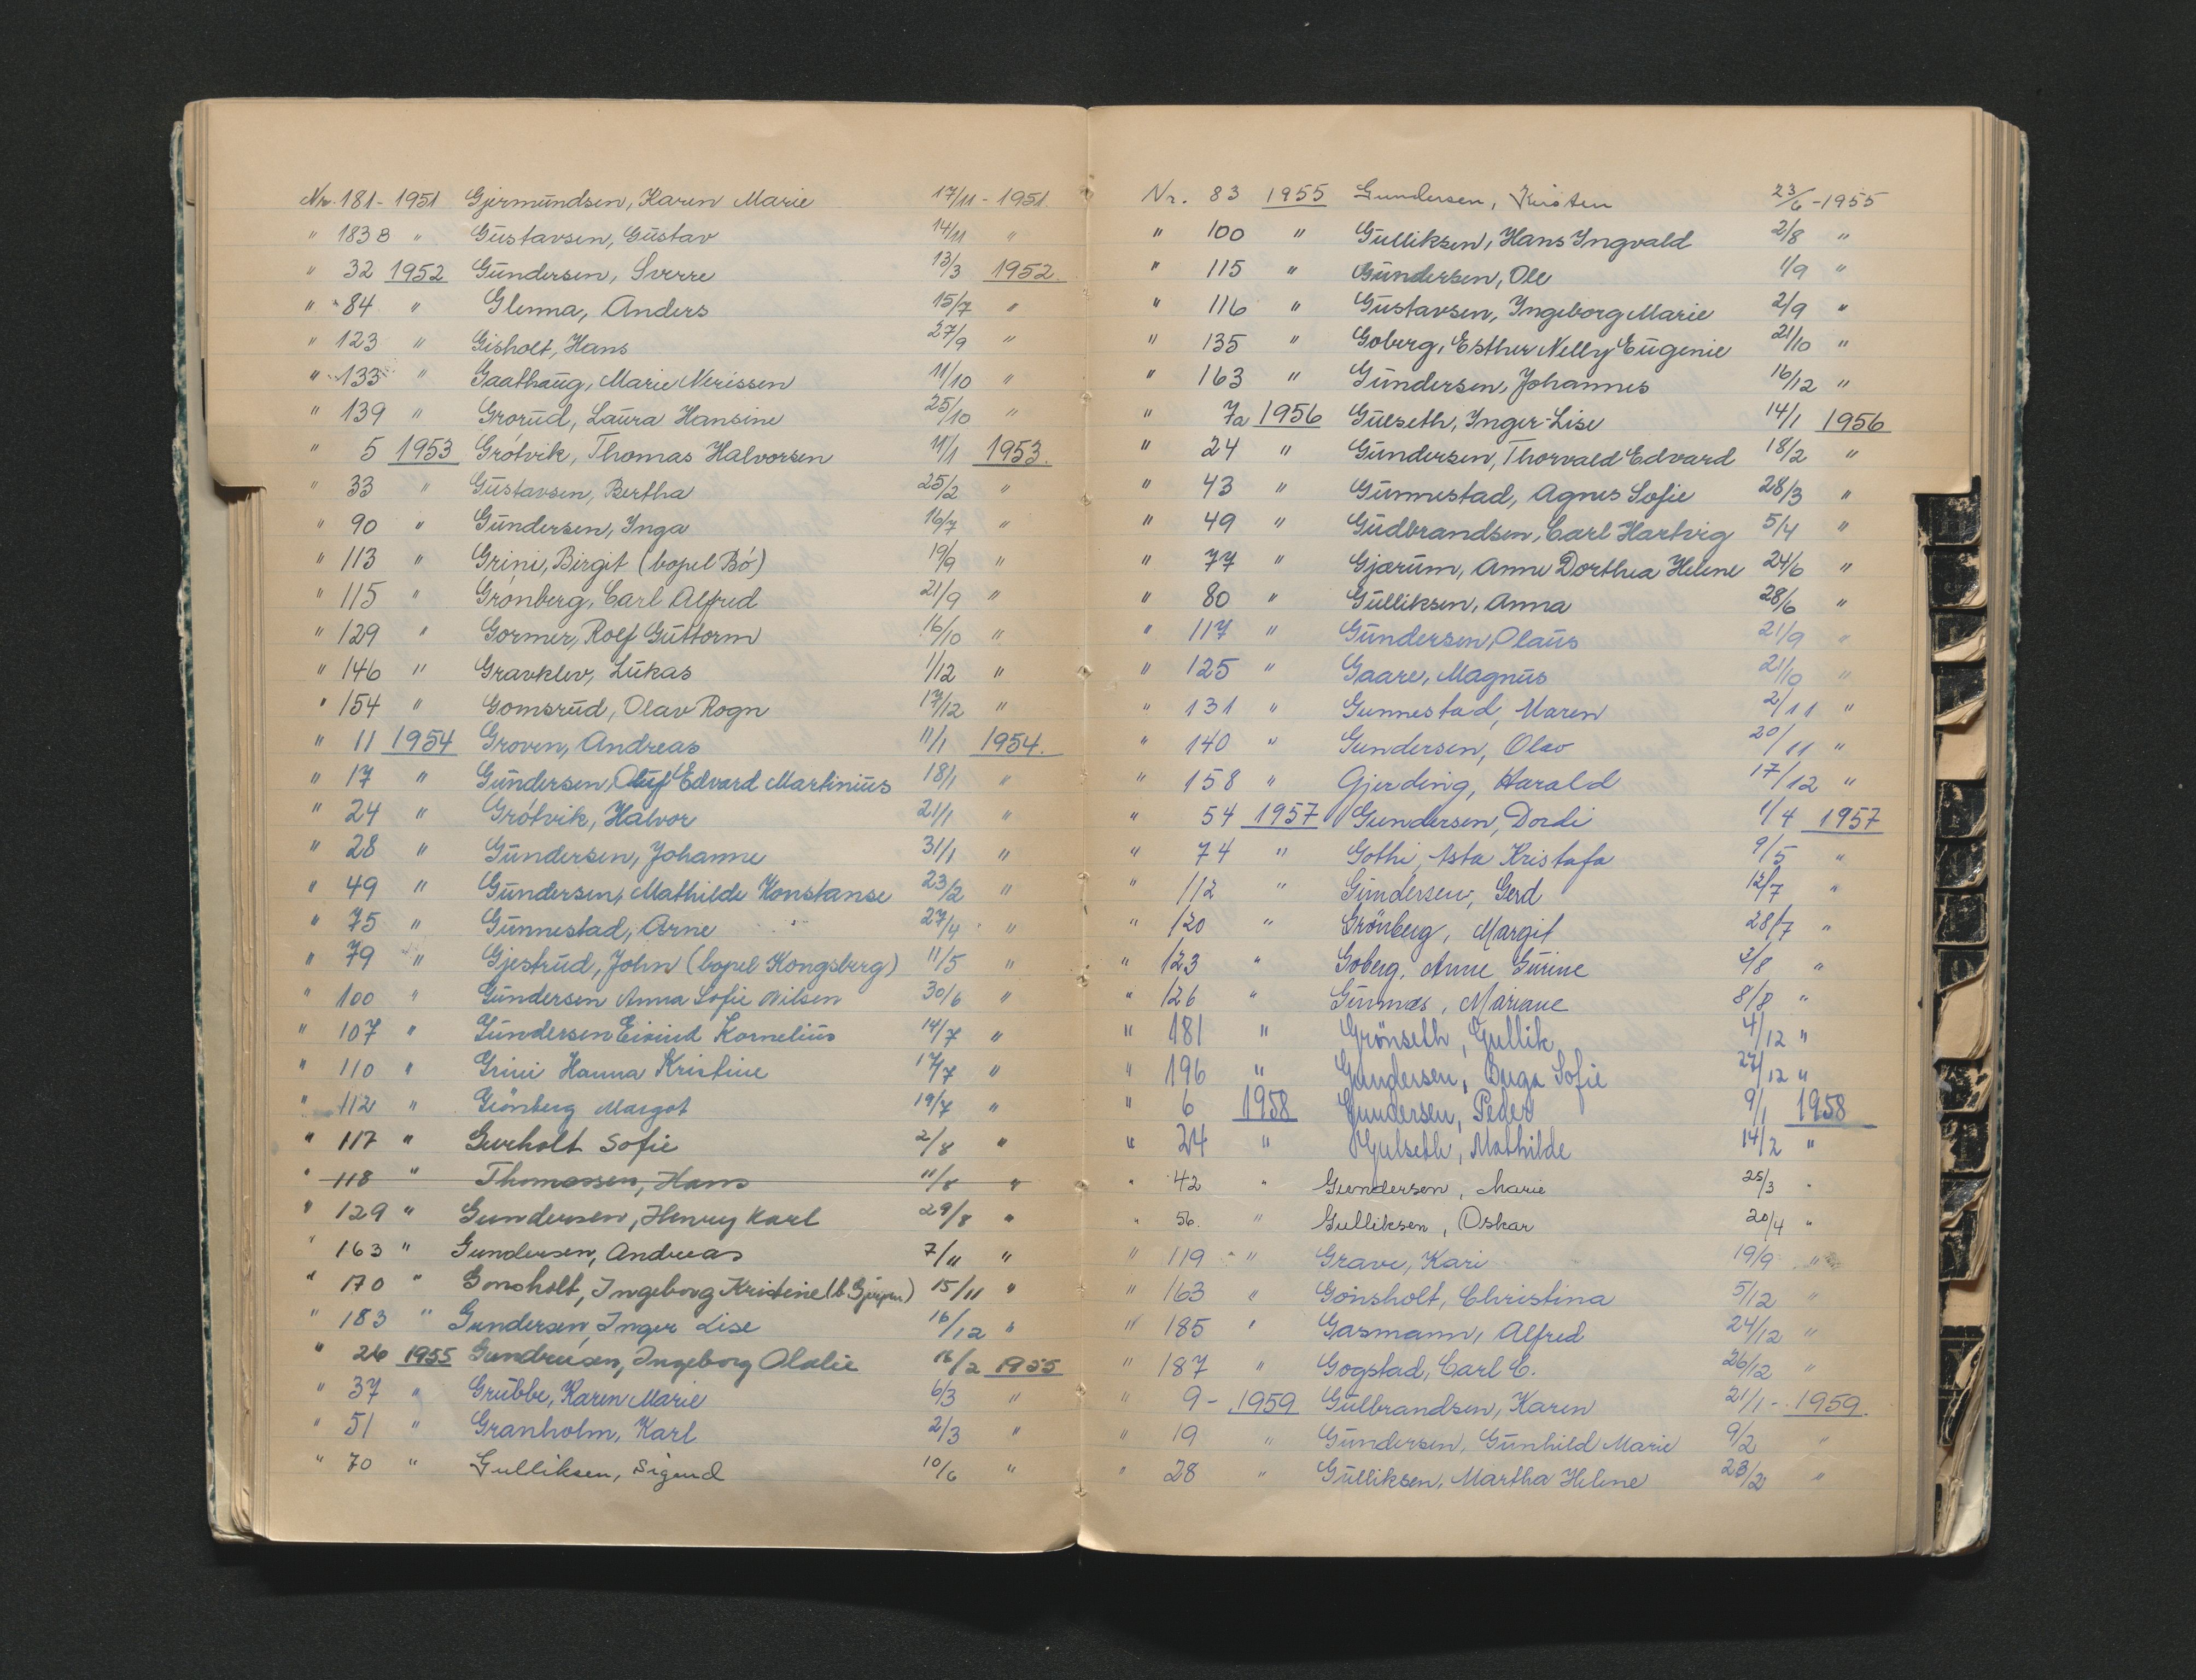 Nr. 181 - 1951 Gjermundsen, Karen Marie 17/11 - 1951.
" 183B " Gustavsen, Gustav 14/11 "
" 32 1952 Gundersen, Sverre 13/3 1952.
" 84 " Glenna, Anders 15/7 "
" 123 " Gisholt, Hans 27/9 "
" 133 " Gaathaug, Marie Nerissen 11/10 "
" 139 " Grorud, Laura Hansine 25/10 "
" 5 1953 Grótvik, Thomas Halvorsen 11/1 1953.
" 33 " Gustavsen, Bertha 25/2 "
" 90 " Gundersen, Inga 16/7 "
" 113 " Grini, Birgit (bopel Bó) 19/9 "
" 115 " Grónberg, Carl Alfred 21/9 "
" 129 " Gormer, Rolf Guttorm 16/10 "
" 146 " Gravklev, Lukas 1/12 "
" 154 " Gomsrud, Olav Rogn 17/12 "
" 11 1954 Groven, Andreas 11/1 1954.
" 17 " Gundersen, Oluf Edvard Martinius 18/1 "
" 24 " Grótvik, Halvor 21/1 "
" 28 " Gundersen, Johanne 31/1 "
" 49 " Gundersen, Mathilde Konstanse 23/2 "
" 75 " Gunnestad, Arne 27/4 "
" 79 " Gjestrud, John (bopel Kongsberg) 11/5 "
" 100 " Gundersen Anna Sofie Nilsen 30/6 "
" 107 " Gundersen Eivind Kornelius 14/7 "
" 110 " Grini Hanna Kristine 17/7 "
" 112 " Grönberg Margot 19/7 "
" 117 " Gurholt Sofie 2/8 "
" 118 " Thomassen, Hans 11/8 "
" 129 " Gundersen, Henry Karl 29/8 "
" 163 " Gundersen, Andreas 7/11 "
" 170 " Gonsholt, Ingeborg Kristine (b. Gjerpen) 15/11 "
" 183 " Gundersen, Inger Lise 16/12 "
" 26 1955 Gundersen, Ingeborg Olalie 16/2 1955
" 37 " Grubbe, Karen Marie 6/3 "
" 51 " Granholm, Karl 2/3 "
" 70 " Gulliksen, Sigurd 10/6 "
Nr. 83 1955 Gundersen, Kirsten 23/6 - 1955
" 100 " Gulliksen, Hans Ingvald 2/8 "
" 115 " Gundersen, Ole 1/9 "
" 116 " Gustavsen, Ingeborg Marie 2/9 "
" 135 " Goberg, Esther Nelly Eugenie 21/10 "
" 163 " Gundersen, Johannes 16/12 "
" 7a 1956 Gulseth, Inger-Lise 14/1 1956
" 24 " Gundersen, Thorvald Edvard 18/2 "
" 43 " Gunnestad, Agnes Sofie 28/3 "
" 49 " Gudbrandsen, Carl Hartvig 5/4 "
" 77 " Gjærum, Anne Dorthea Helene 24/6 "
" 80 " Gulliksen, Anna 28/6 "
" 117 " Gundersen, Olaus 21/9 "
" 125 " Gaare, Magnus 21/10 "
" 131 " Gunnestad, Maren 2/11 "
" 140 " Gundersen, Olav 20/11 "
" 158 " Gjerding, Harald 17/12 "
" 54 1957 Gundersen, Dordi 1/4 1957
" 74 " Gothi, Asta Kristofa 9/5 "
" 112 " Gundersen, Gerd 12/7 "
" 120 " Grönberg, Margit 28/7 "
" 123 " Goberg, Anne Gurine 3/8 "
" 126 " Gunnæs, Mariane 8/8 "
" 181 " Grönseth, Gullik 4/12 "
" 196 " Gundersen, Inga Sofie 27/12 "
" 6 1958 Gundersen, Peder 9/1 1958
" 24 " Gulseth, Mathilde 14/2 "
" 42 " Gundersen, Marie 25/3 "
" 56. " Gulliksen, Oskar 20/4 "
" 119 " Grave, Kari 19/9 "
" 163 " Gonsholt, Christina 5/12 "
" 185 " Gasmann, Alfred 24/12 "
" 187 " Gogstad, Carl C. 26/12 "
" 9 - 1959 Gulbrandsen, Karen 21/1 - 1959.
" 19 " Gundersen, Gunhild Marie 9/2 "
" 28 " Gulliksen, Martha Helene 23/2 "